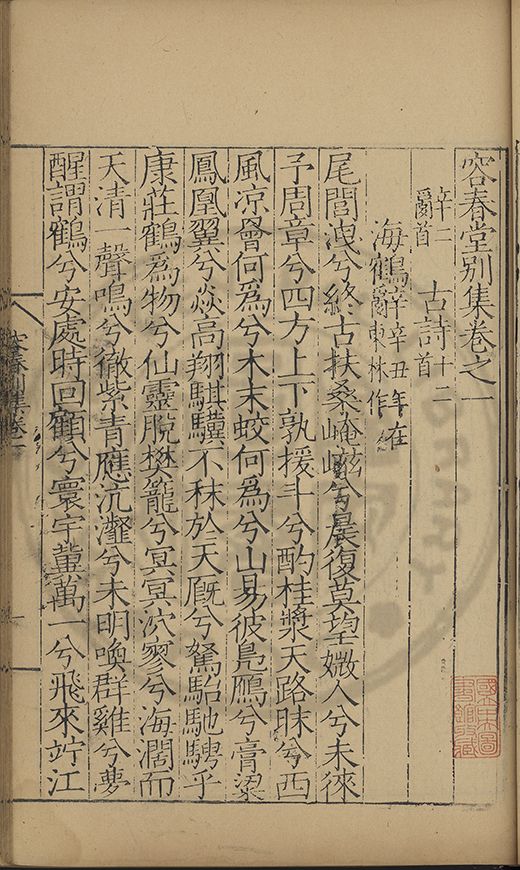 容春堂別集卷之一
辭二首　古詩十二首
海鶴辭辛丑年在東林作
尾閭洩兮終古扶桑崦嵫兮晨復莫望媺人兮未徠
予周章兮四方上下孰援斗兮酌桂漿天路昧兮西
風凉罾何爲兮木末蛟何爲兮山易彼鳧鴈兮膏粱
鳳凰翼兮焱高翔騏驥不秣於天廐兮駑駘馳騁乎
康莊鶴爲物兮仙靈脫樊籠兮冥冥泬寥兮海濶而
天清一聲鳴兮徹紫青應沆瀣兮未明喚群雞兮夢
醒謂鶴兮安處時回顧兮寰宇蓳萬一兮飛來竚江